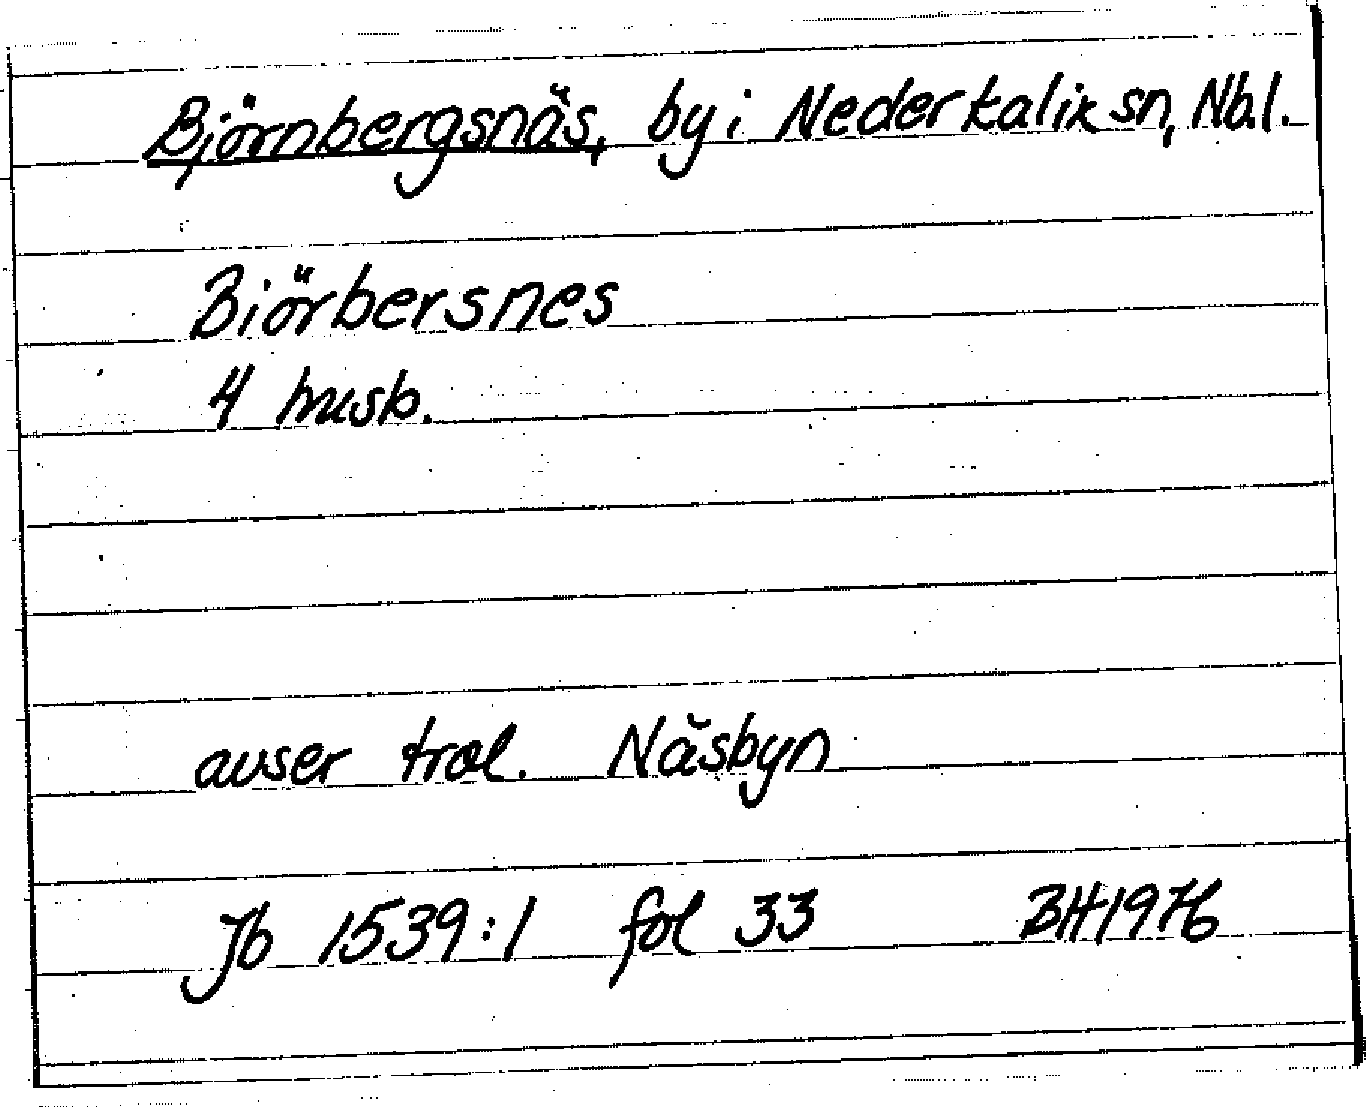 Björnbergsnäs, by i Nederkalix sn, Nb.l.
Biörbersnes
4 husb.
avser trol. Näsbyn
Jb 1539:1 fol 33 BH1976